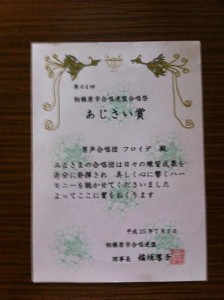 相模原市合唱連盟合唱祭
あじさい賞
男声合唱団 フロイデ 殿
みなさまの合唱団は日々の練習成果を
存分に発揮され 美しく心に響くハー
モニーを聴かせてくださいました
よってここに賞をおくります
平成25年7月
相模原市合唱連盟
理事長